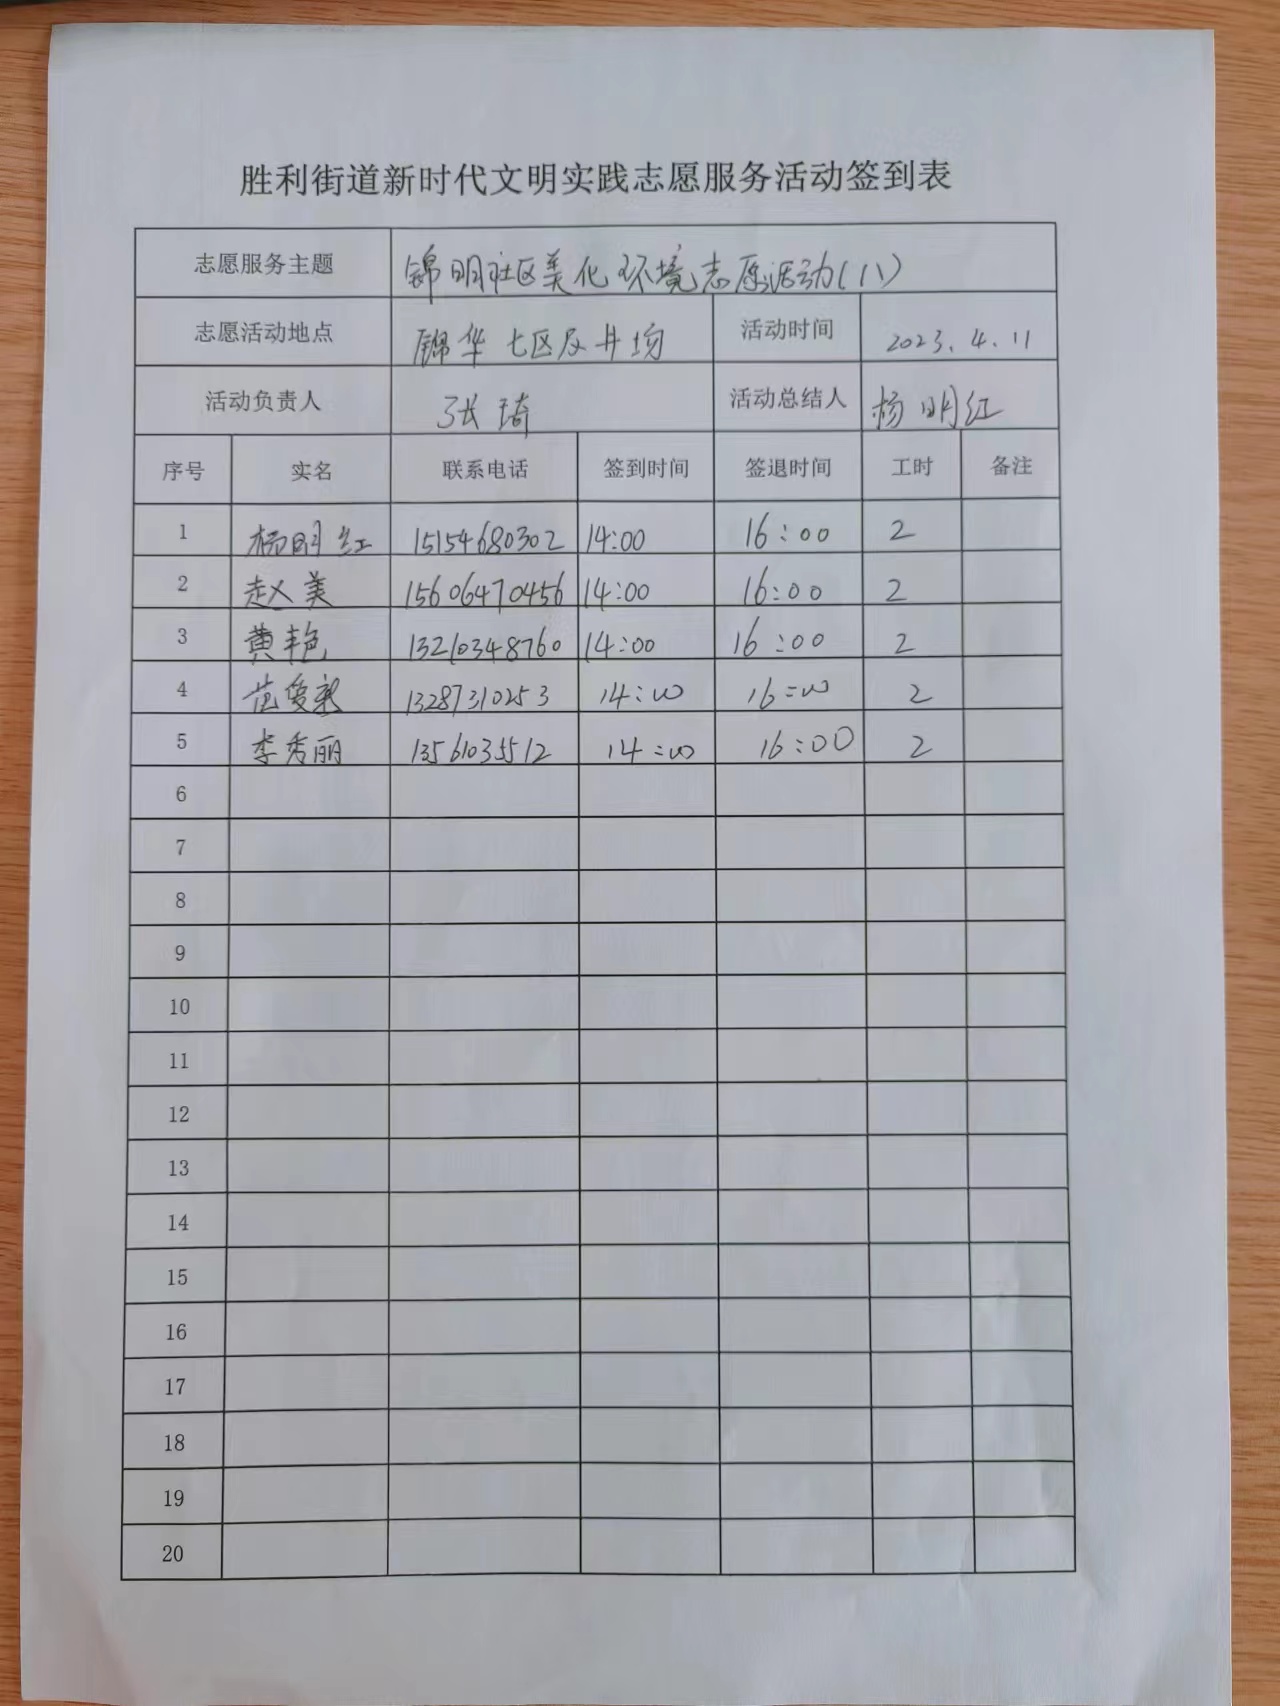 胜利街道新时代文明实践志愿服务活动签到表
志愿服务主题 锦明社区美化环境志愿活动(八)
志愿活动地点 锦华七区及井场 活动时间 2023.4.11
活动负责人 张琦 活动总结人 杨明红
序号 实名 联系电话 签到时间 签退时间 工时 备注
1 杨明红 15154680302 14:00 16:00 2
2 赵美 15606470456 14:00 16:00 2
3 黄艳 13210348760 14:00 16:00 2
4 范俊新 13287310253 14:00 16:00 2
5 李秀丽 13561035512 14:00 16:00 2
6
7
8
9
10
11
12
13
14
15
16
17
18
19
20